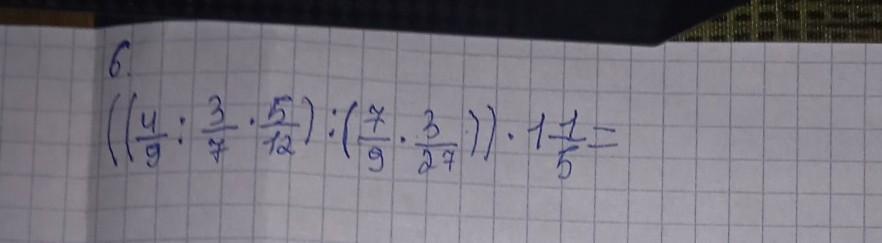 6.
((4/9 : 3/7 · 5/12) : (7/9 · 3/27)) · 1 1/5 =